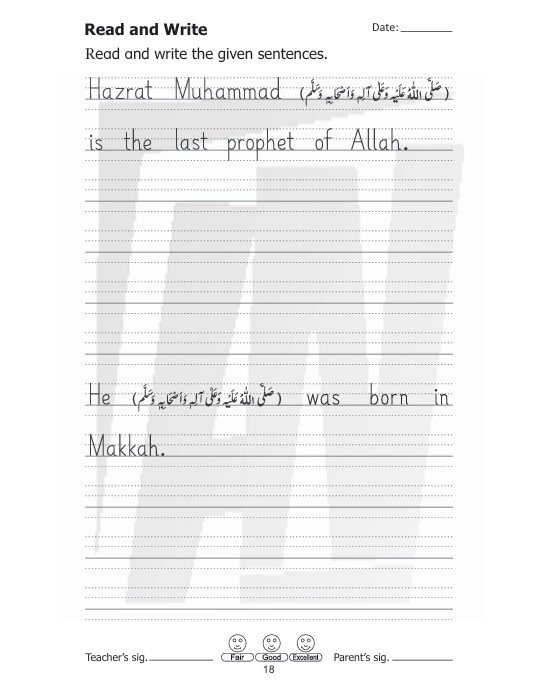 Read and Write
Date:
Read and write the given sentences.
Hazrat Muhammad (صَلَّی اللّٰهُ عَلَیْهِ وَعَلٰٓی آلِهٖ وَاَصْحَابِهٖ وَسَلَّم)
is the last prophet of Allah.
He (صَلَّی اللّٰهُ عَلَیْهِ وَعَلٰٓی آلِهٖ وَاَصْحَابِهٖ وَسَلَّم) was born in
Makkah.
Teacher's sig. Fair Good Excellent Parent's sig.
18